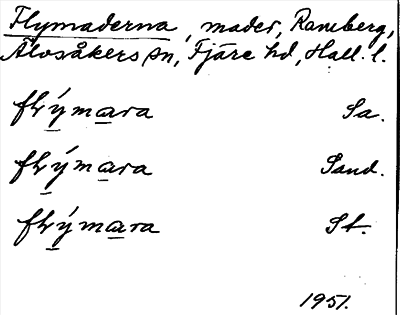 Flymaderna, mader, Ramberg,
Älvsåkers sn, Fjäre hd, Hall. l.
flýmara Sa.
flýmara Sand.
flýmara St.
1951.